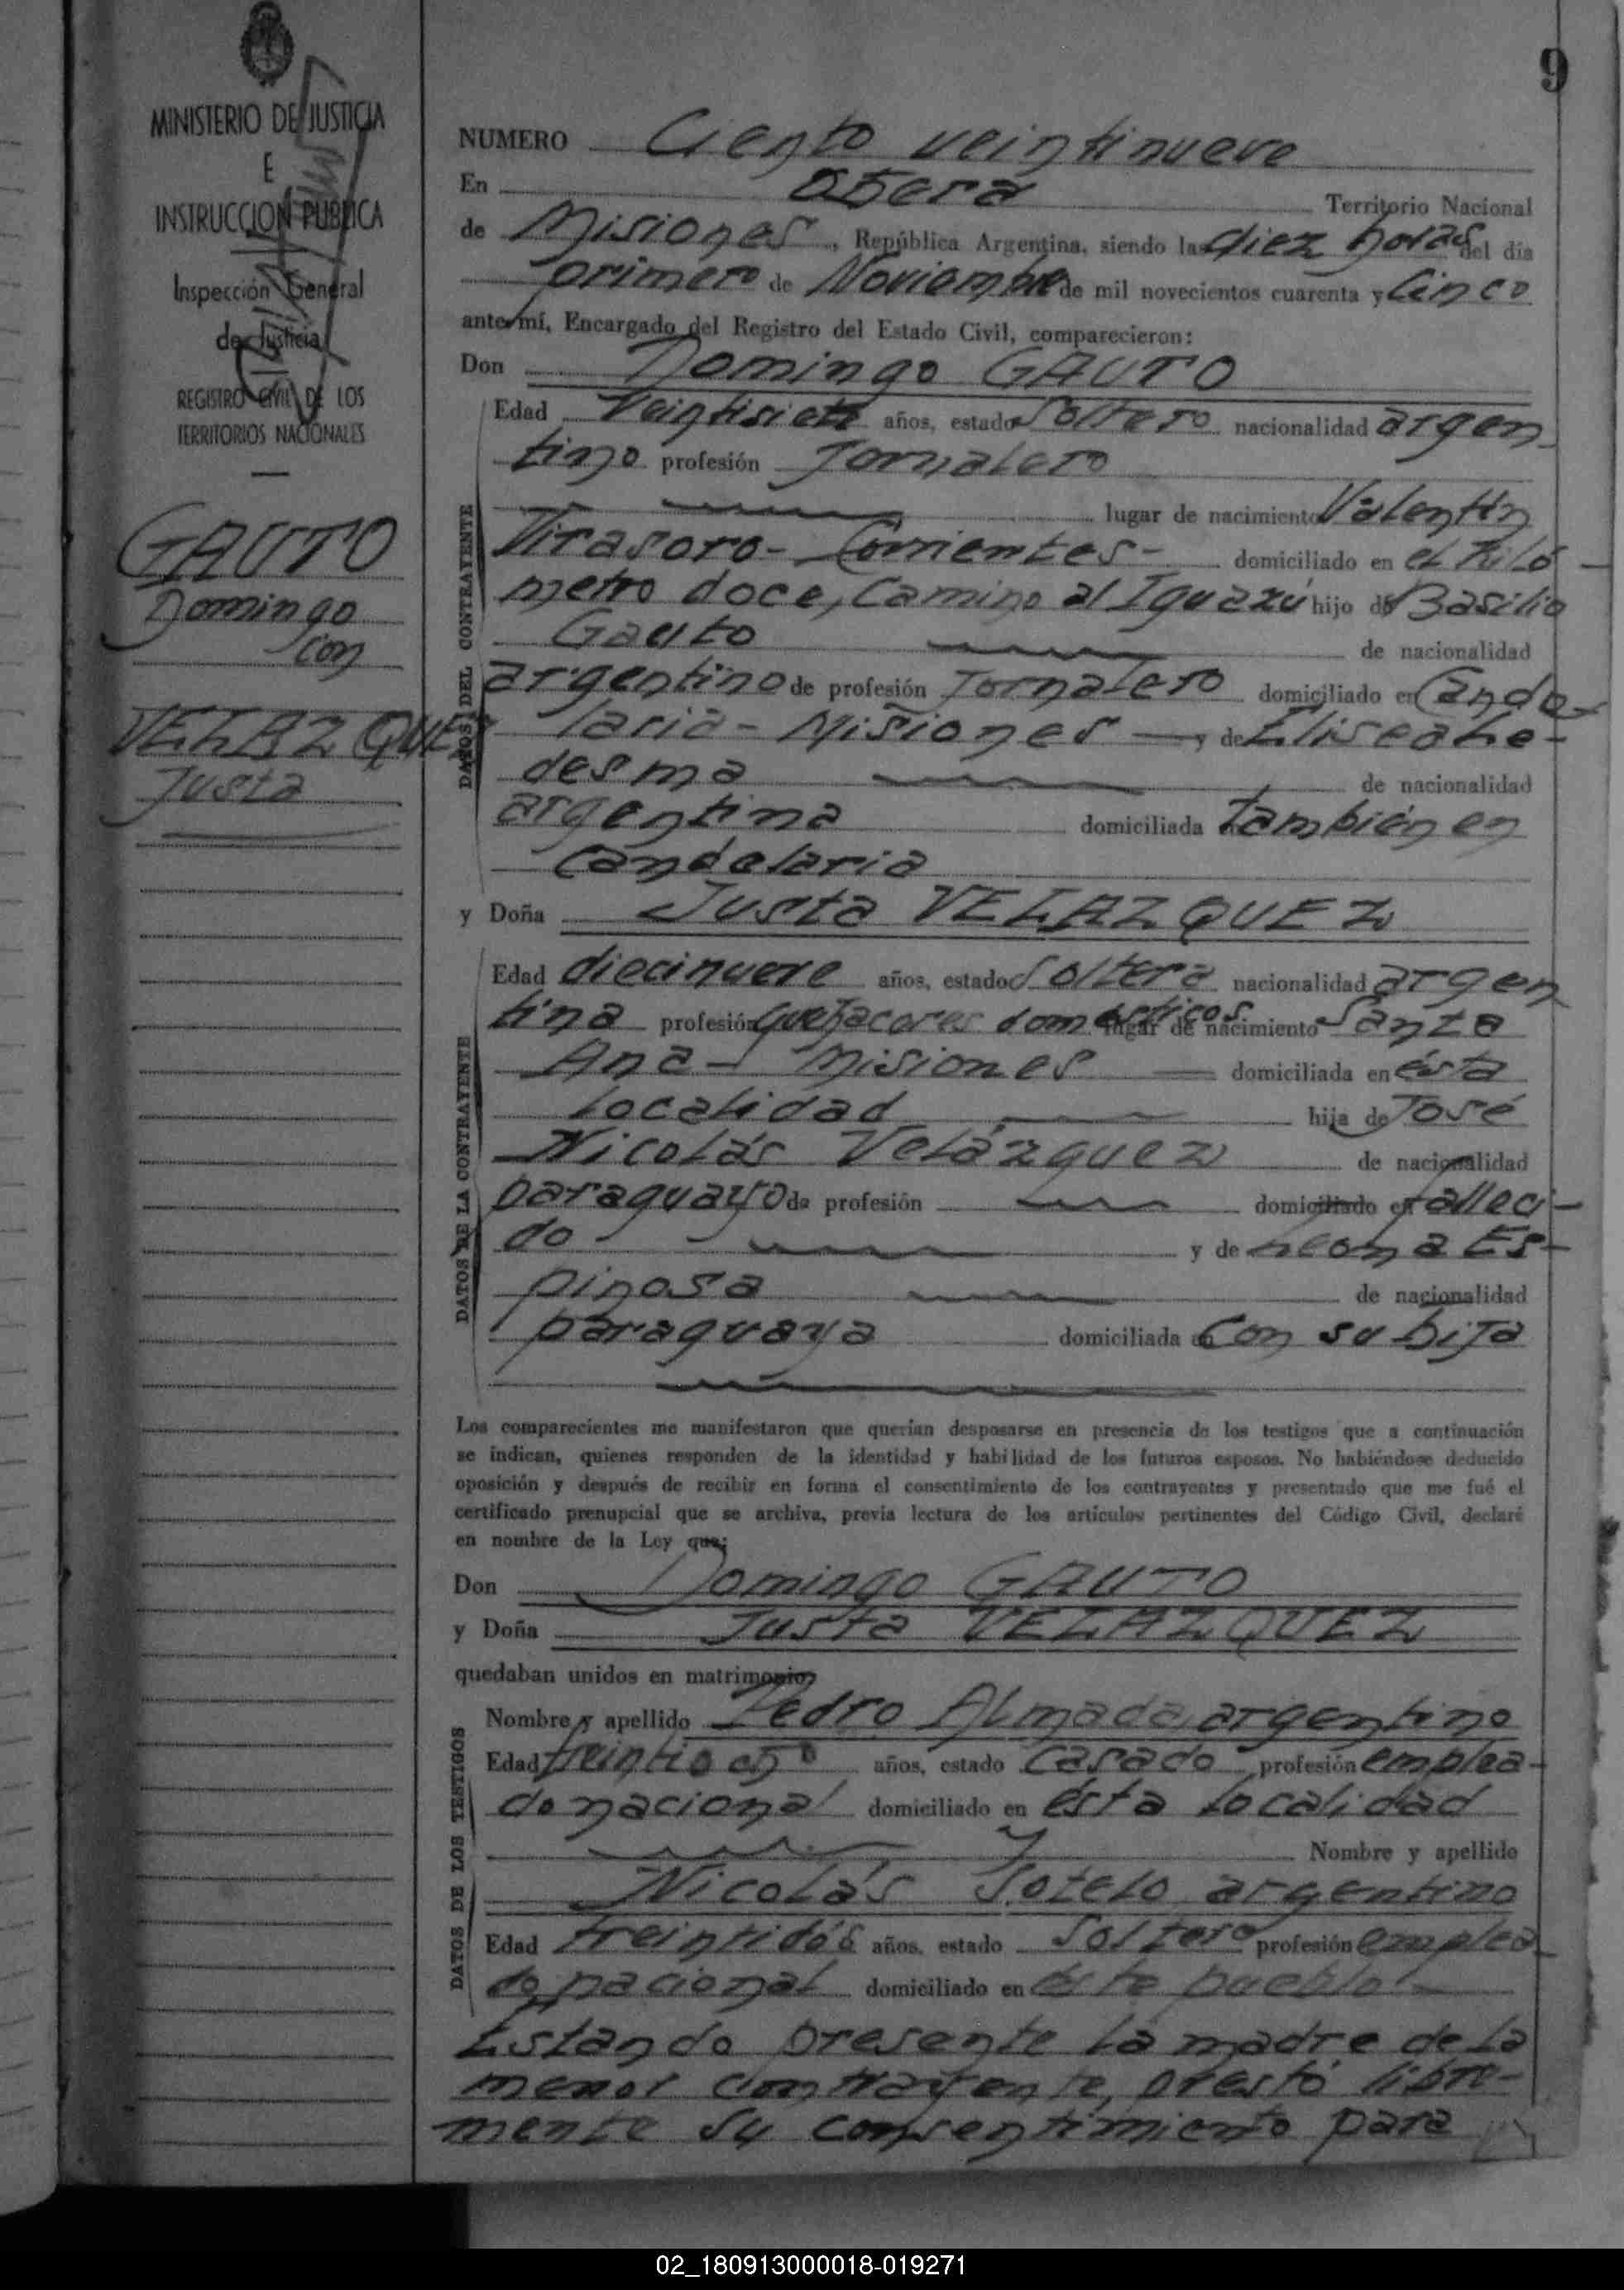 9
MINISTERIO DE JUSTICIA
E
INSTRUCCION PUBLICA
Inspección General
de Justicia
REGISTRO CIVIL DE LOS
TERRITORIOS NACIONALES
GAUTO
Domingo
con
VELAZQUEZ
Justa
NUMERO Ciento veintinueve
En Oberá Territorio Nacional
de Misiones, República Argentina, siendo las diez horas del día
primero de Noviembre de mil novecientos cuarenta y Cinco
ante mí, Encargado del Registro del Estado Civil, comparecieron:
Don Domingo GAUTO
DATOS DEL CONTRAYENTE
Edad Veintisiete años, estado Soltero nacionalidad argen
tino profesión Jornalero
lugar de nacimiento Valentín
Virasoro - Corrientes - domiciliado en el Kiló
metro doce, Camino al Iguazú hijo de Basilio
Gauto de nacionalidad
argentino de profesión Jornalero domiciliado en Cande
laria - Misiones - y de Elisea Le-
desma de nacionalidad
argentina domiciliada también en
Candelaria
y Doña Justa VELAZQUEZ
DATOS DE LA CONTRAYENTE
Edad diecinueve años, estado Soltera nacionalidad argen
tina profesión quehaceres domésticos lugar de nacimiento Santa
Ana - Misiones domiciliada en ésta
localidad hija de José
Nicolás Velázquez de nacionalidad
paraguayo de profesión domiciliado en falleci-
do y de Es-
pinosa de nacionalidad
paraguaya domiciliada en Con su hija
Los comparecientes me manifestaron que querían desposarse en presencia de los testigos que a continuación
se indican, quienes responden de la identidad y habilidad de los futuros esposos. No habiéndose deducido
oposición y después de recibir en forma el consentimiento de los contrayentes y presentado que me fué el
certificado prenupcial que se archiva, previa lectura de los artículos pertinentes del Código Civil, declaré
en nombre de la Ley que:
Don Domingo GAUTO
y Doña Justa VELAZQUEZ
quedaban unidos en matrimonio
DATOS DE LOS TESTIGOS
Nombre y apellido Pedro Almada, argentino
Edad treintiocho años, estado casado profesión emplea-
do nacional domiciliado en ésta localidad
y Nombre y apellido
Nicolás Sotelo argentino
Edad treintidós años, estado Soltero profesión emplea
do nacional domiciliado en éste pueblo
Estando presente la madre de la
menor contrayente, prestó libre-
mente su consentimiento para
02_180913000018-019271